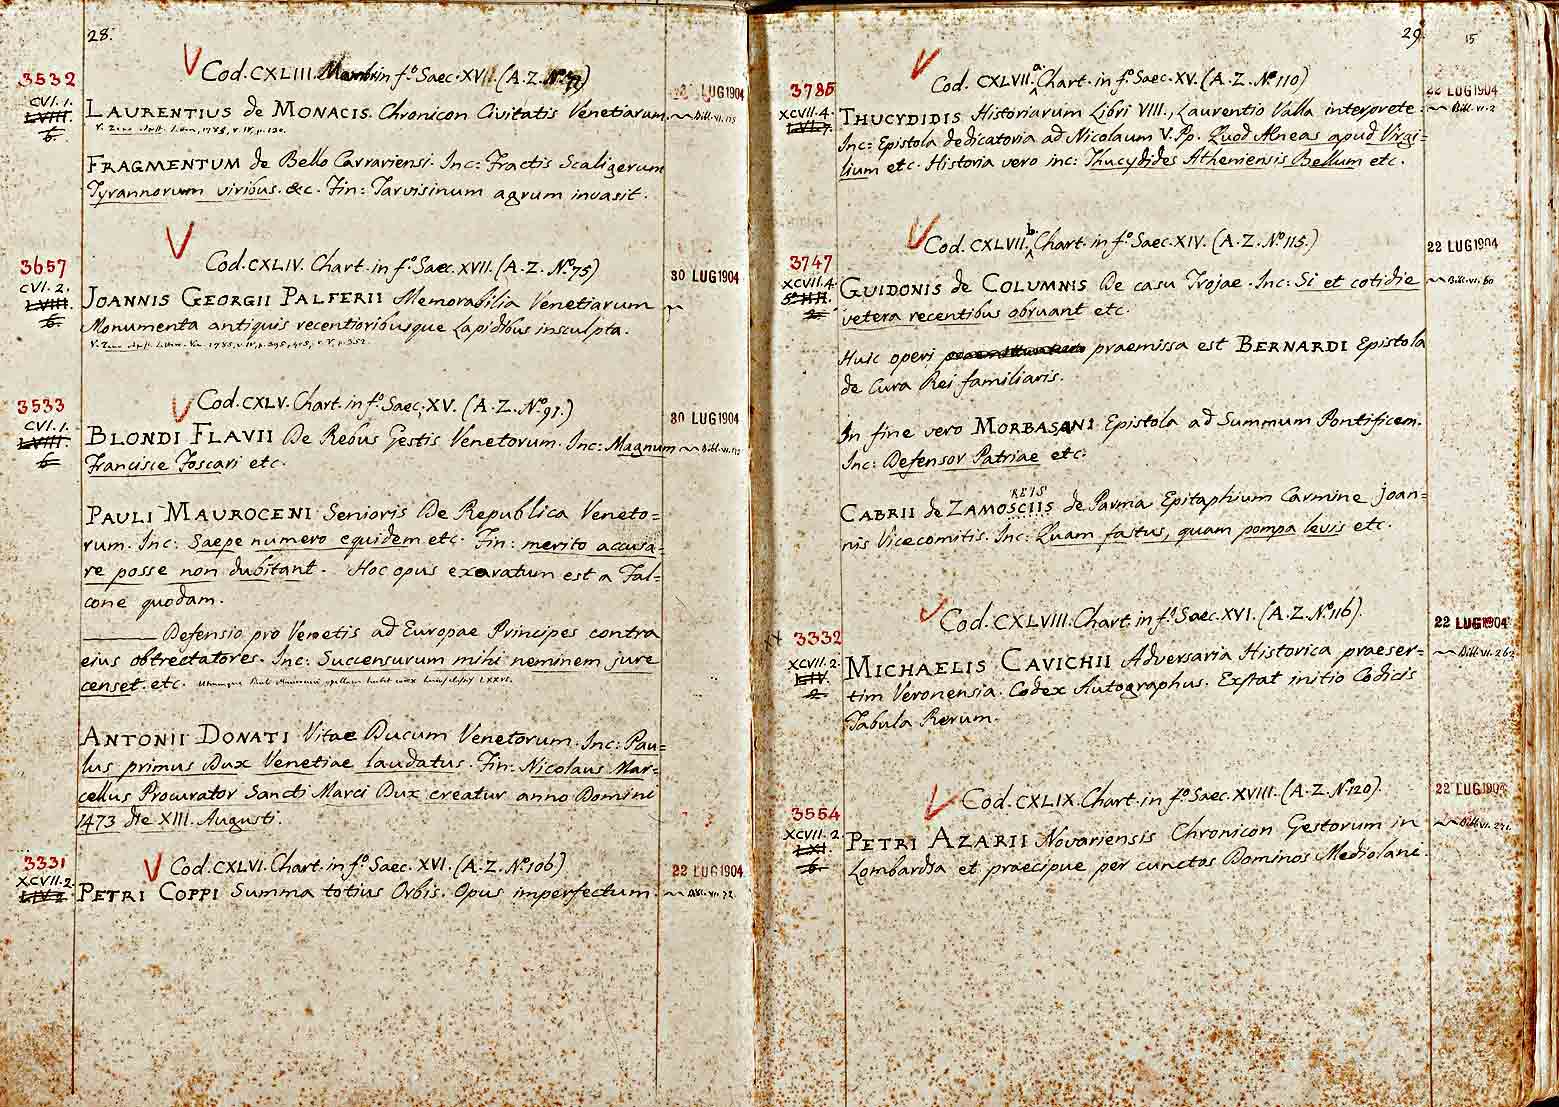 28.
3532
Cod. CXLIII. in f.º Saec. XVII. (A. Z. Nº
LUG 1904
CVI. 1.
LVIII.
6.
LAURENTIUS de MONACIS. Chronicon Civitatis Venetiarum.
FRAGMENTUM de Bello Carrariensi. Inc: Fractis Scaligerum
Tyrannorum viribus. &c. Fin: Tarvisinum agrum invasit.
3657
Cod. CXLIV. Chart. in f.º Saec. XVII. (A. Z. Nº 75)
30 LUG 1904
CVI. 2.
LVIII.
6.
JOANNIS GEORGII PALFERII Memorabilia Venetiarum
Monumenta antiquis recentioribusque Lapidibus insculpta.
3533
Cod. CXLV. Chart. in f.º Saec. XV. (A. Z. Nº 91.)
30 LUG 1904
CVI. 1.
LVIII.
6.
BLONDI FLAVII De Rebus Gestis Venetorum. Inc: Magnum
Francisce Foscari etc.
PAULI MAUROCENI Senioris De Republica Veneto=
rum. Inc: Saepe numero equidem etc. Fin: merito accusa=
re posse non dubitant. Hoc opus exaratum est a Fal=
cone quodam.
——— Defensio pro Venetis ad Europae Principes contra
eius obtrectatores. Inc: Succensurum mihi neminem jure
censet. etc.
ANTONII DONATI Vitae Ducum Venetorum. Inc: Pau=
lus primus Dux Venetiae laudatus. Fin: Nicolaus Mar=
cellus Procurator Sancti Marci Dux creatur anno Domini
1473 die XIII. Augusti.
3331
Cod. CXLVI. Chart. in f.º Saec. XVI. (A. Z. Nº 106)
22 LUG 1904
XCVII. 2.
LIV. 2.
PETRI COPPI Summa totius Orbis. Opus imperfectum.
29.
15
3785
Cod. CXLVII.a Chart. in f.º Saec. XV. (A. Z. Nº 110)
22 LUG 1904
XCVII. 4.
THUCYDIDIS Historiarum Libri VIII., Laurentio Valla interprete.
Bibl. VI. 2
Inc: Epistola dedicatoria ad Nicolaum V. Pp. Quod Aeneas apud Virgi=
lium etc. Historia vero inc: Thucydides Atheniensis Bellum etc.
3747
Cod. CXLVII.b Chart. in f.º Saec. XIV. (A. Z. Nº 115.)
22 LUG 1904
XCVII. 4.
GUIDONIS de COLUMNIS De casu Trojae. Inc: Si et cotidie
vetera recentibus obruant etc.
Huic operi praemissa est BERNARDI Epistola
de Cura Rei familiaris.
In fine vero MORBASANI Epistola ad Summum Pontificem.
Inc: Defensor Patriae etc.
REIS
CABRII de ZAMOSCIIS de Parma Epitaphium Carmine Joan=
nis Vicecomitis. Inc: Quam fastus, quam pompa levis etc.
3332
Cod. CXLVIII. Chart. in f.º Saec. XVI. (A. Z. Nº 116).
22 LUG 1904
XCVII. 2.
LIV.
2.
MICHAELIS CAVICHII Adversaria Historica praeser=
tim Veronensia. Codex Autographus. Exstat initio Codicis
Tabula Rerum.
3554
Cod. CXLIX. Chart. in f.º Saec. XVIII. (A. Z. Nº 120).
22 LUG 1904
XCVII. 2.
LXI.
6.
PETRI AZARII Novariensis Chronicon Gestorum in
Lombardia et praecipue per cunctos Dominos Mediolani.